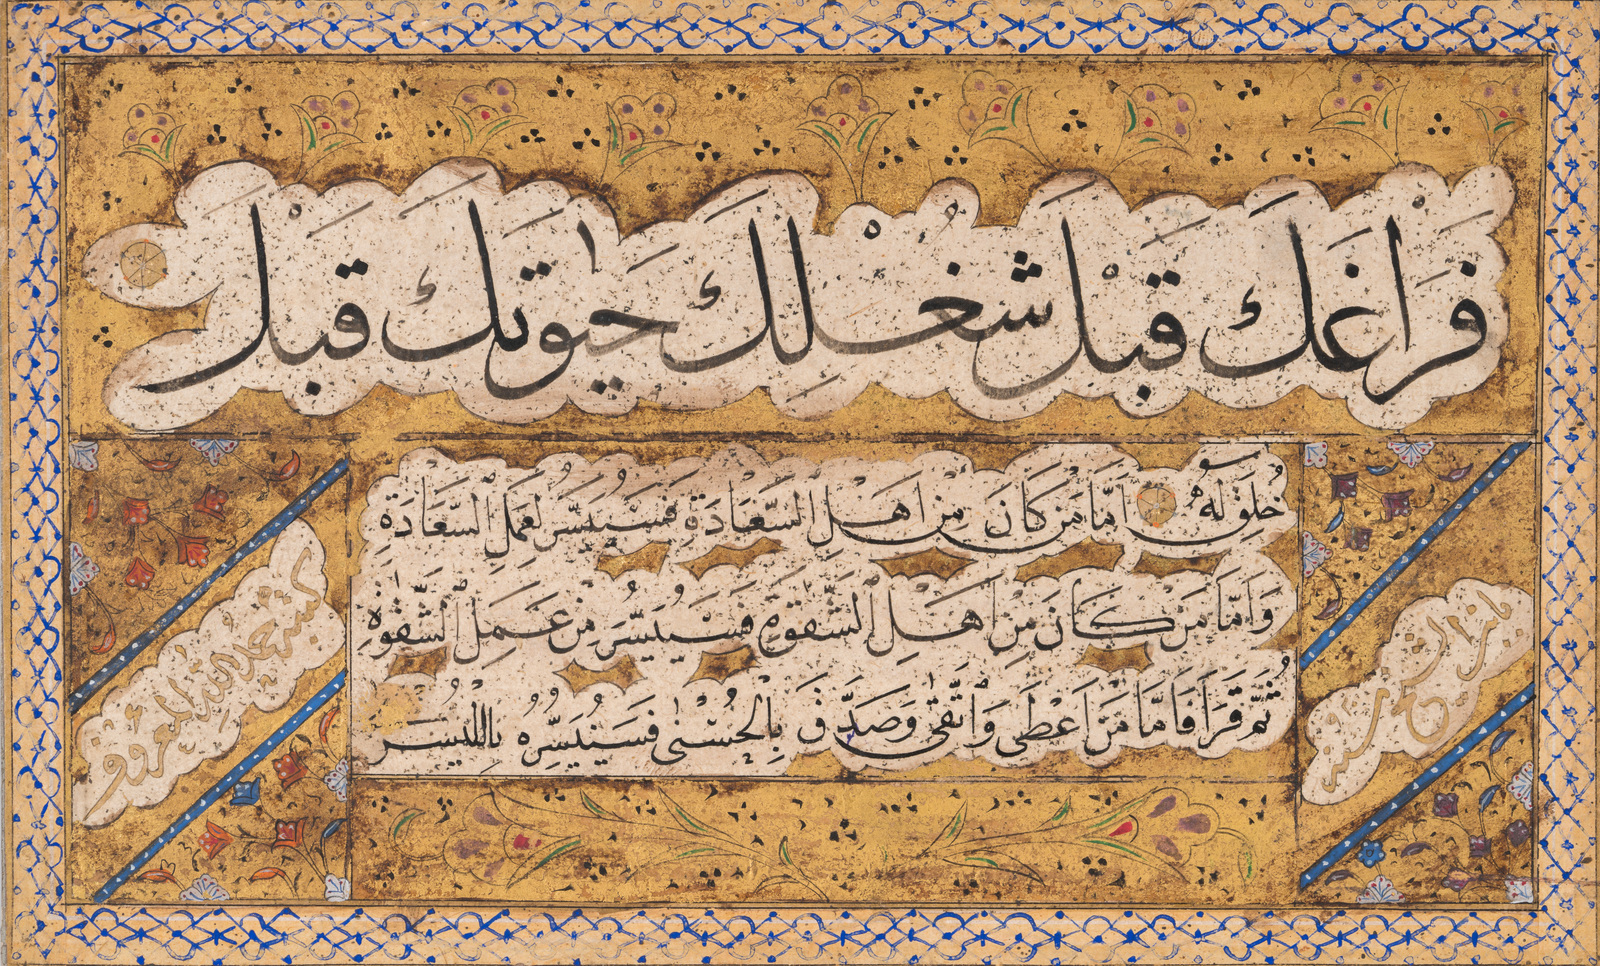 فَرَاغَكَ قَبْلَ شُغْلِكَ حَيٰوتَكَ قَبْلَ
خُلِقَ لَهُ اَمَّا مَنْ كَانَ مِنْ اَهْلِ السَّعَادَةِ فَسَيُيَسَّرُ لِعَمَلِ السَّعَادَةِ
وَاَمَّا مَنْ كَانَ مِنْ اَهْلِ الشَّقْوَةِ فَسَيُيَسَّرُ مِنْ عَمَلِ الشَّقْوَةِ
ثُمَّ قَرَاَ فَاَمَّا مَنْ اَعْطَى وَاتَّقَى وَصَدَّقَ بِالْحُسْنَى فَسَنُيَسِّرُهُ بِاللْيُسْرَ
حمد الله المعروف
بابن الشيخ